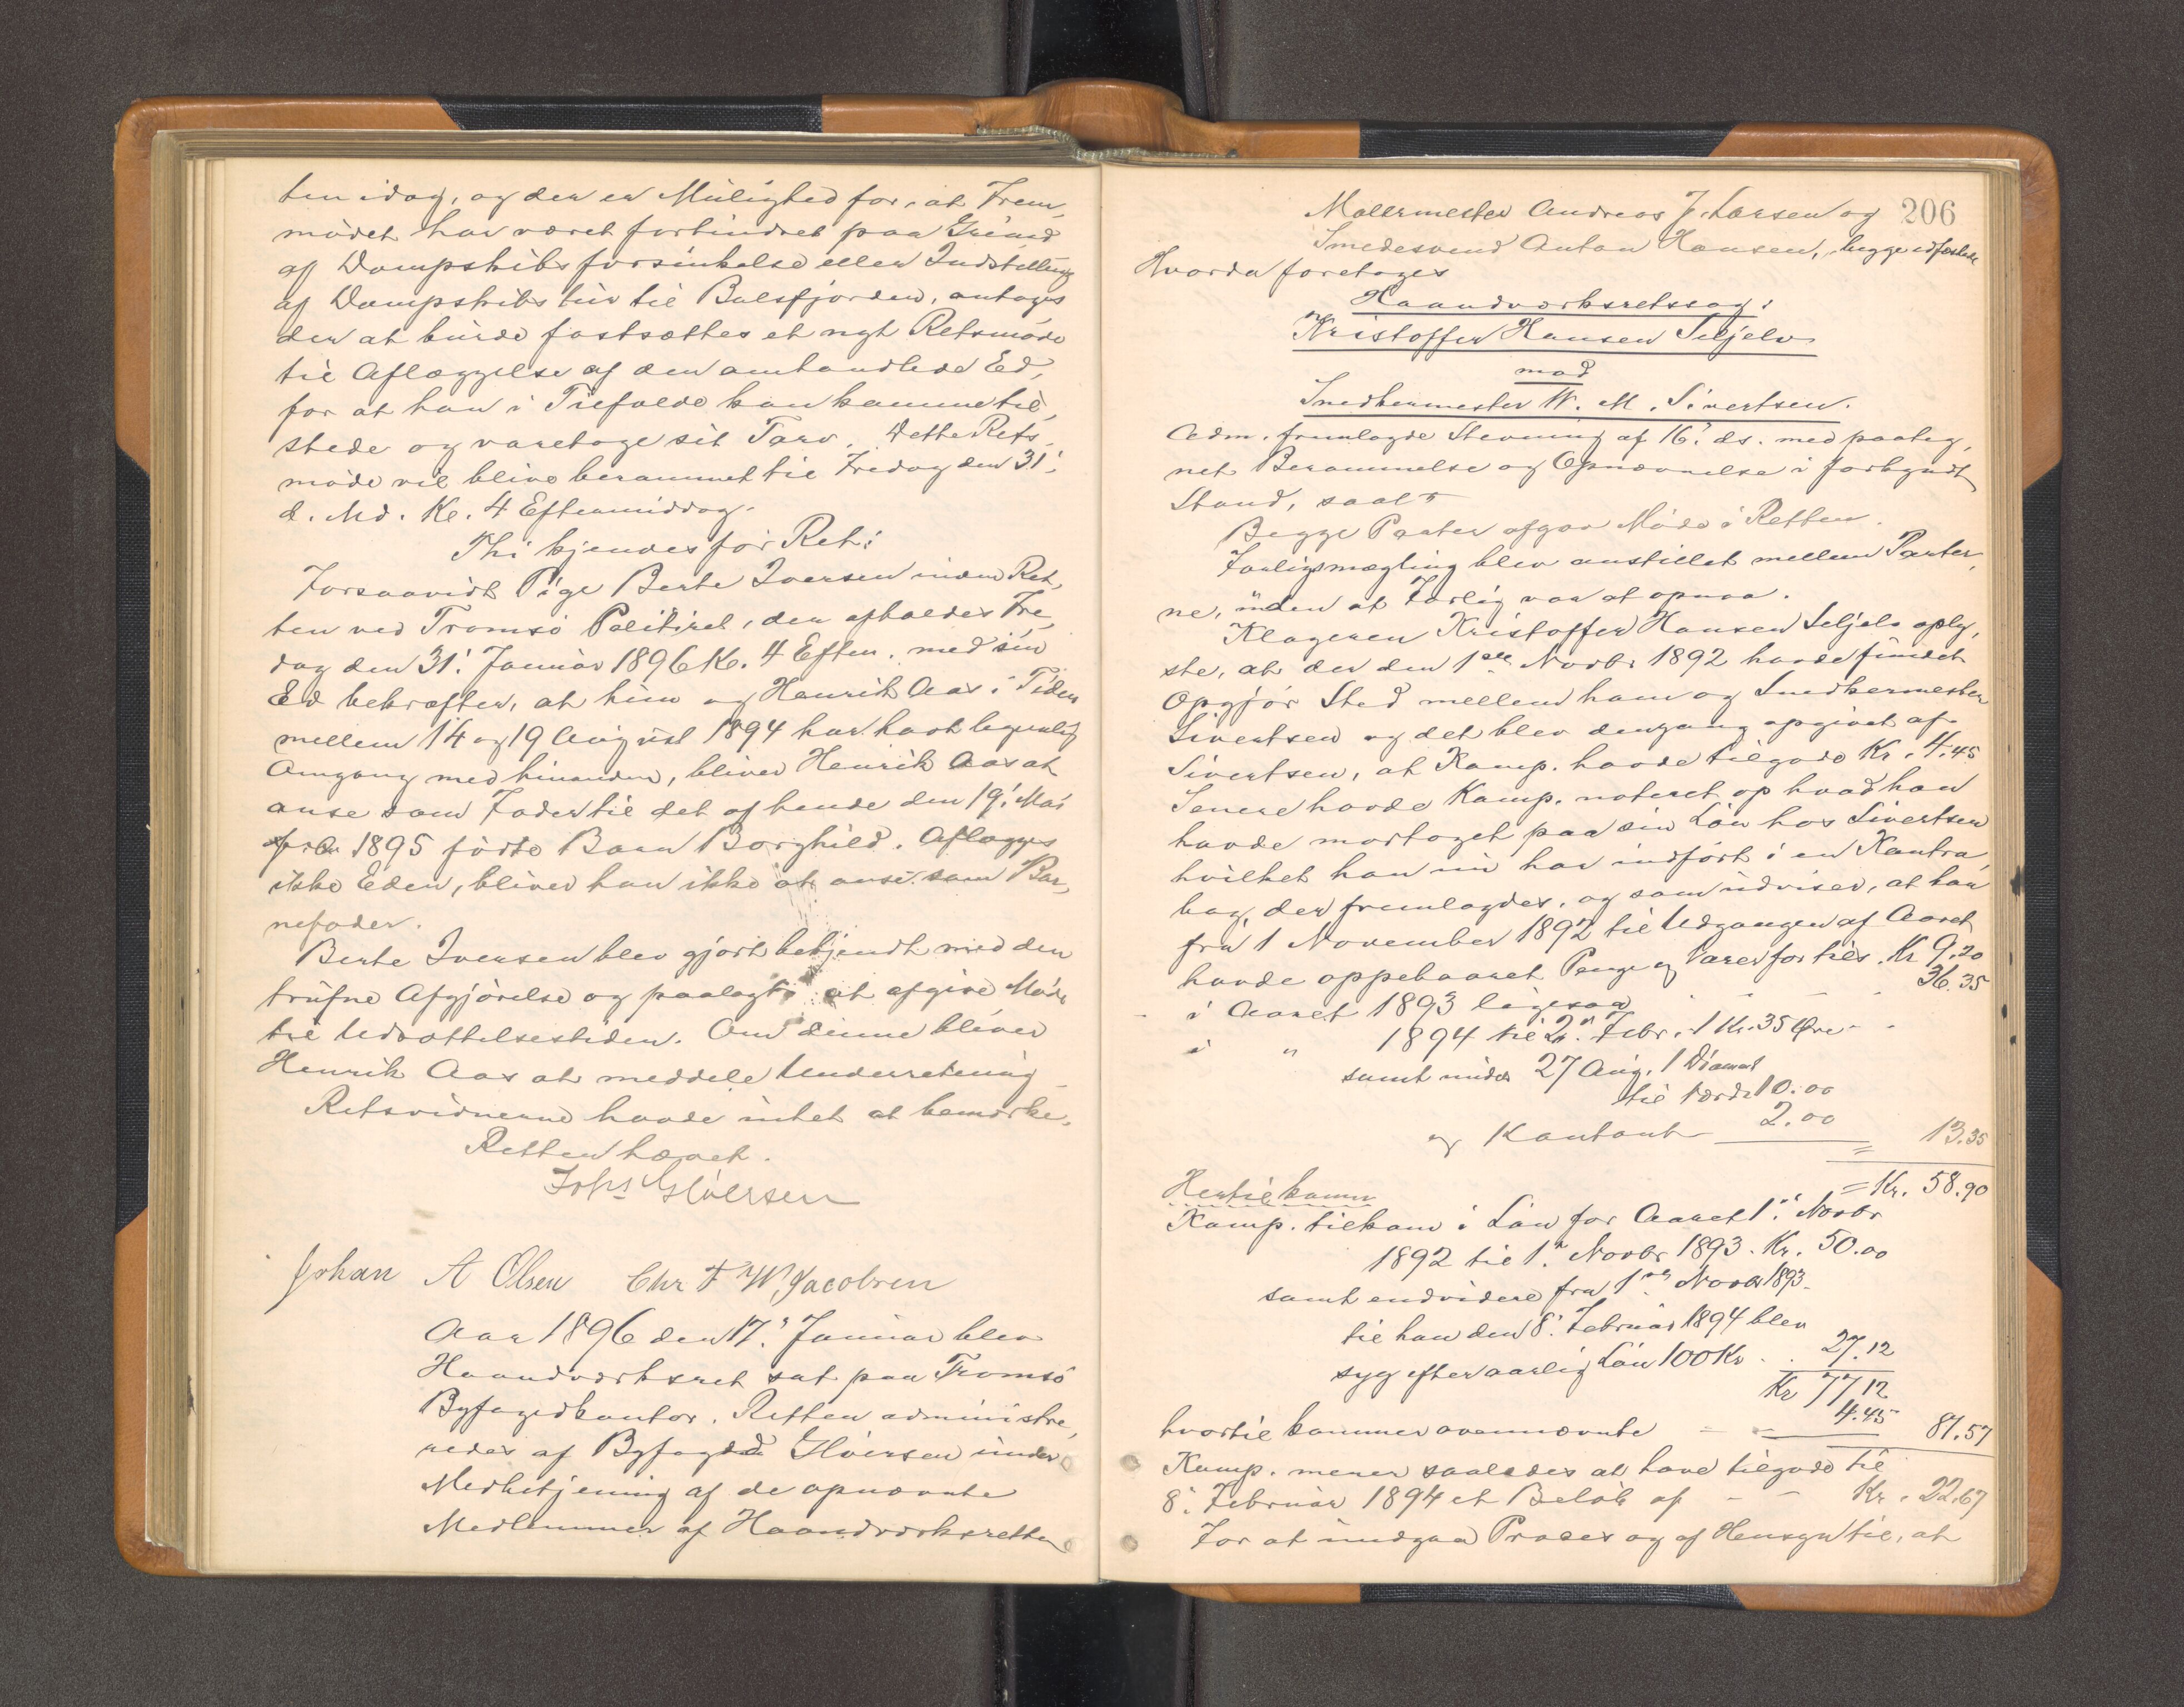 ten idag, og der er Mulighed for, at Frem-
mødet har været forhindret paa Grund
af Dampskibsforsinkelse eller Indstilling
af Dampskibstur til Balsfjorden, antages
der at burde fastsættes et nyt Retsmøde
til Aflæggelse af den omhandlede Ed,
for at han i Tilfælde kan komme til
stede og varetage sit Tarv. Dette Rets-
møde vil blive berammet til Fredag den 31'
d. Md. Kl. 4 Eftermiddag.
Thi kjendes for Ret:
Forsaavidt Pige Berte Iversen inden Ret-
ten ved Tromsø Politiret, der afholdes Fre-
dag den 31' Januar 1896 Kl. 4 Efterm. med sin
Ed bekræfter, at hun og Henrik Aas i Tiden
mellem 14 og 19 August 1894 har havt legemlig
Omgang med hinanden, bliver Henrik Aas at
anse som Fader til det af hende den 19' Mai
1895 fødte Barn Borghild. Aflægges
ikke Eden, bliver han ikke at anse som Bar-
nefader.
Berte Iversen blev gjort bekjendt med den
trufne Afgjørelse og paalagt at afgive Møde
til Udsættelsestiden. Om denne bliver
Henrik Aas at meddele Underretning
Retsvidnerne havde intet at bemærke.
Retten hævet.
Johs Gløersen
Johan A Olsen Chr F W Jacobsen
Aar 1896 den 17' Januar blev
Haandværksret sat paa Tromsø
Byfogedkontor. Retten administre-
redes af Byfoged Gløersen under
Medbetjening af de opnævnte
Medlemmer af Haandværksretten
206
Malermester Andreas J. Larsen og
Smedesvend Anton Hansen, begge edfæstede
Hvorda foretoges
Haandværksretssag:
Kristoffer Hansen Seljelv
mod
Snedkermester W. M. Sivertsen.
Adm. fremlagde Stevning af 16' ds. med paateg-
net Berammelse og Opnævnelse i forkyndt
Stand, saal.
Begge Parter afgav Møde i Retten.
Forligsmægling blev anstillet mellem Parter-
ne, uden at Forlig var at opnaa.
Klageren Kristoffer Hansen Seljelv oply-
ste, at der den 1ste Novbr 1892 havde fundet
Opgjør Sted mellem ham og Snedkermester
Sivertsen og det blev dengang opgivet af
Sivertsen, at Komp. havde tilgode Kr. 4.45
Senere havde Komp. noteret op hvad han
havde modtaget paa sin Løn hos Sivertsen
hvilket han nu har indført i en Kontra-
bog, der fremlagdes, og som udviser, at han
fra 1 November 1892 til Udgangen af Aaret
havde oppebaaret Penge og Varer for tils. Kr 9.20
- i Aaret 1893 ligesaa - - - 36.35
i " 1894 til 2' Febr. 1 Kr. 35 Øre -
samt under 27 Aug. 1 Diamant
til Værdi 10.00
og Kontant 2.00 = 13.35
= Kr. 58.90
Hertil kom
Komp. tilkom i Løn for Aaret 1' Novbr
1892 til 1' Novbr 1893. Kr. 50.00
samt endvidere fra 1ste Novbr 1893
til han den 8' Februar 1894 blev
syg efter aarlig Løn 100 Kr. . . 27.12
Kr 77.12
hvortil kommer ovennævnte - - 4.45 81.57
Komp. mener saaledes at have tilgode til
8' Februar 1894 et Beløb af - - Kr. 22.67
For at undgaa Proces og af Hensyn til, at